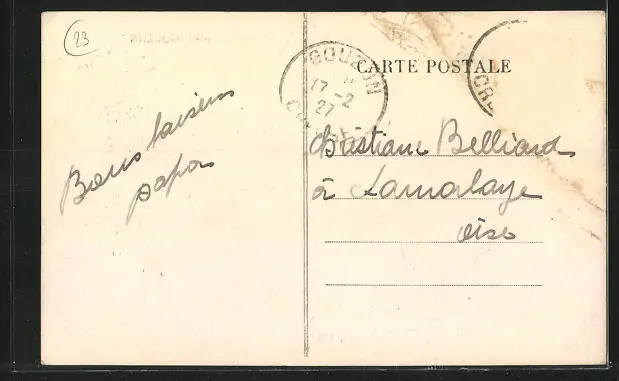 23
Bons baisers
papa
CARTE POSTALE
GOUZON
17 -2
27
CRE
Christiane Belliard
à Lamorlaye
Oise